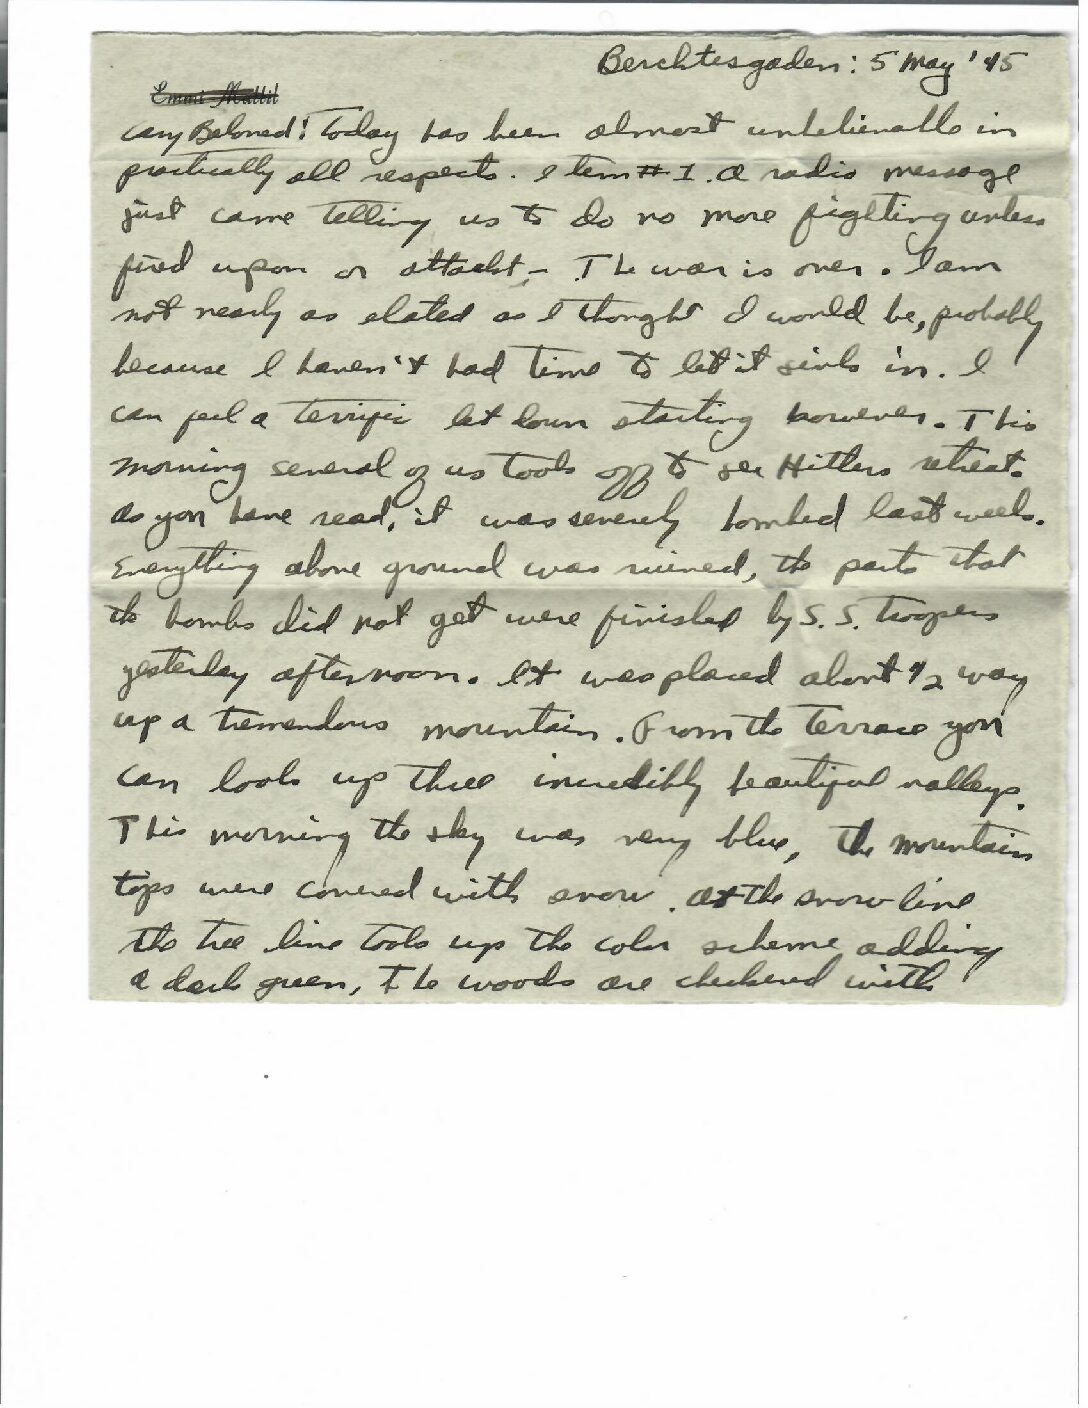 Berchtesgaden: 5 May '45
Emmi Mattil
Cary Beloved! Today has been almost unbelievable in
practically all respects. Item #1. A radio message
just came telling us to do no more fighting unless
fired upon or attackt - The war is over. I am
not nearly as elated as I thought I would be, probably
because I haven't had time to let it sink in. I
can feel a terrific let down starting however. This
morning several of us took off to see Hitlers retreat.
As you have read, it was severely bombed last week.
Everything above ground was ruined, the parts that
the bombs did not get were finished by S.S. troopers
yesterday afternoon. It was placed about 1/2 way
up a tremendous mountain. From the terrace you
can look up three incredibly beautiful valleys.
This morning the sky was very blue, the mountain
tops were covered with snow. At the snow line
the tree line took up the color scheme adding
a dark green, The woods are checkered with